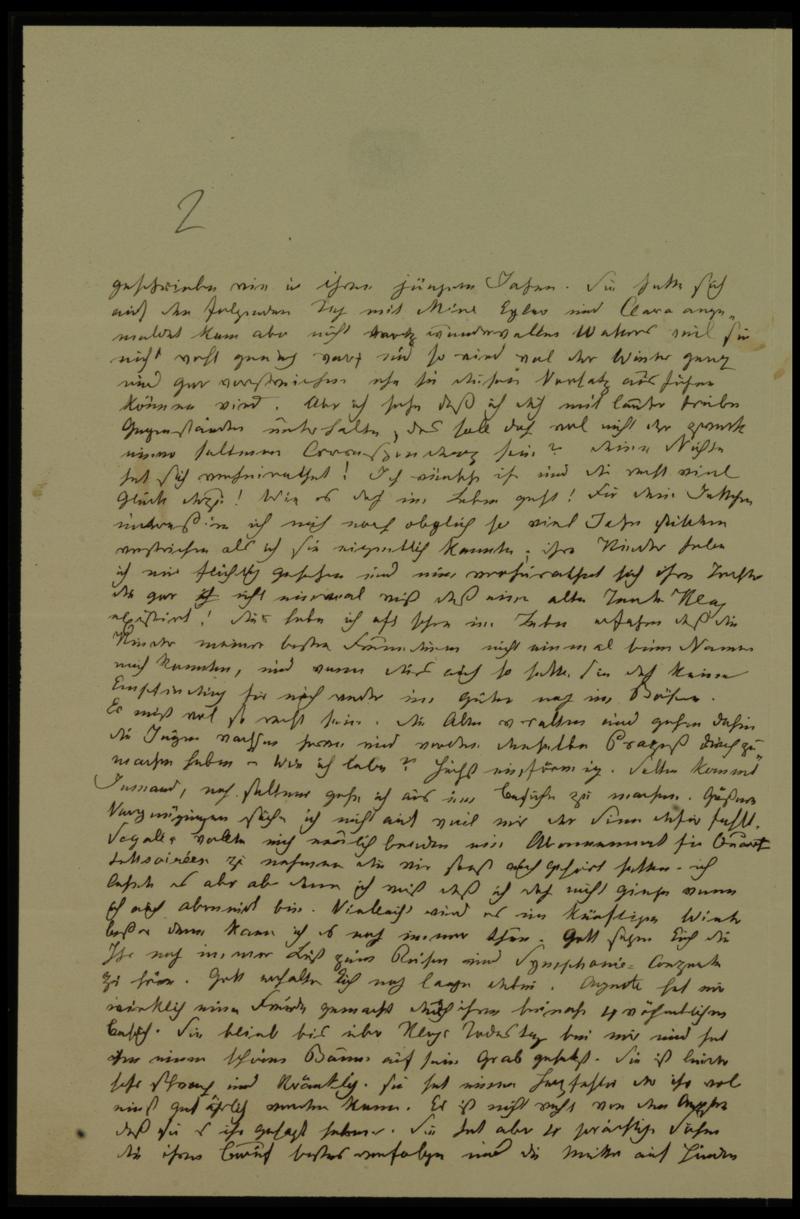 2
geschrieben wie in ihren jüngern Jahren. Sie hatte sich
auf den folgenden Tag mit Mina Egloo und Clara ange„
meldet kam aber nicht trotz wundervollen Wetters weil sie
nicht wohl genug war, und so wird wol der Winter ganz
und gar verstreichen ehe sie diesen Vorsatz ausführen
können wird. Aber ich sehe daß ich dich mit lauter trüben
Gegenständen unterhalte, das soll doch wol nicht der Zweck
einer seltenen Correspondenz sein? deine Nichte
hat sich verheirathet! Ich wünsche ihr und dir recht viel
Glück dazu! Wie es doch im Leben geht! Für dein
interessire ich mich noch obgleich so viel Jahre seitdem
verstrichen als ich sie eigentlich kannte, ihre Kinder habe
ich nie flüchtig gesehen und nun verheirathet sich ihre Tochter
die gar nicht einmal weiß daß eine alte Tante Kley
existirt! dies habe ich oft schon im Leben erfahren daß die
Kinder meiner besten Freundinnen nicht einmal beim Namen
mich kannten, und wenn dies auch so hatten sie doch keine
Empfindung für mich weder im guten noch im Bösen.
Es muß wol so recht sein. die Alten veralten und gehen dahin
die Jungen wachsen heran und werden denselben Prozeß durchzu„
machen haben – Wie ich lebe? höchst einförmig. Selten kommt
Jemand, noch seltner gehe ich aus um Besuche zu machen. Größere
Vergnügungen suche ich nicht auf weil mir der Sinn dafür fehlt.
wollten mich neulich bereden ein Abonnement für Quart
tettsoiréen zu nehmen die wir sonst auch gehört hatten – ich
lehnte es aber ab denn ich weiß daß ich doch nicht ginge wenn
ich auch abonnirt bin. Vielleicht wird es im künftigen Winter
besser dann kann ich es noch immer thun. Gott segne Euch die
Ihr noch immer Lust zum Reisen und Symphonie= Conzerte
zu hören. Gott erhalte dich noch lange dabei. Auguste hat mir
wirklich eine Freude gemacht durch ihren beinahe 4 wöchentlichen
Besuch. Sie blieb bis über Kleys Todestag bei mir und hat
einen schönen Baum auf sein Grab gesetzt. Sie ist leider
sehr schwach und kränklich. sie hat einen Herzfehler der ihr wol
einst gefährlich werden kann. Es ist nicht recht von den
daß sie es ihr gesagt haben. Sie hat aber 4 prächtige Söhne
die ihren Beruf bestens verfolgen und die Mutter auf Händen